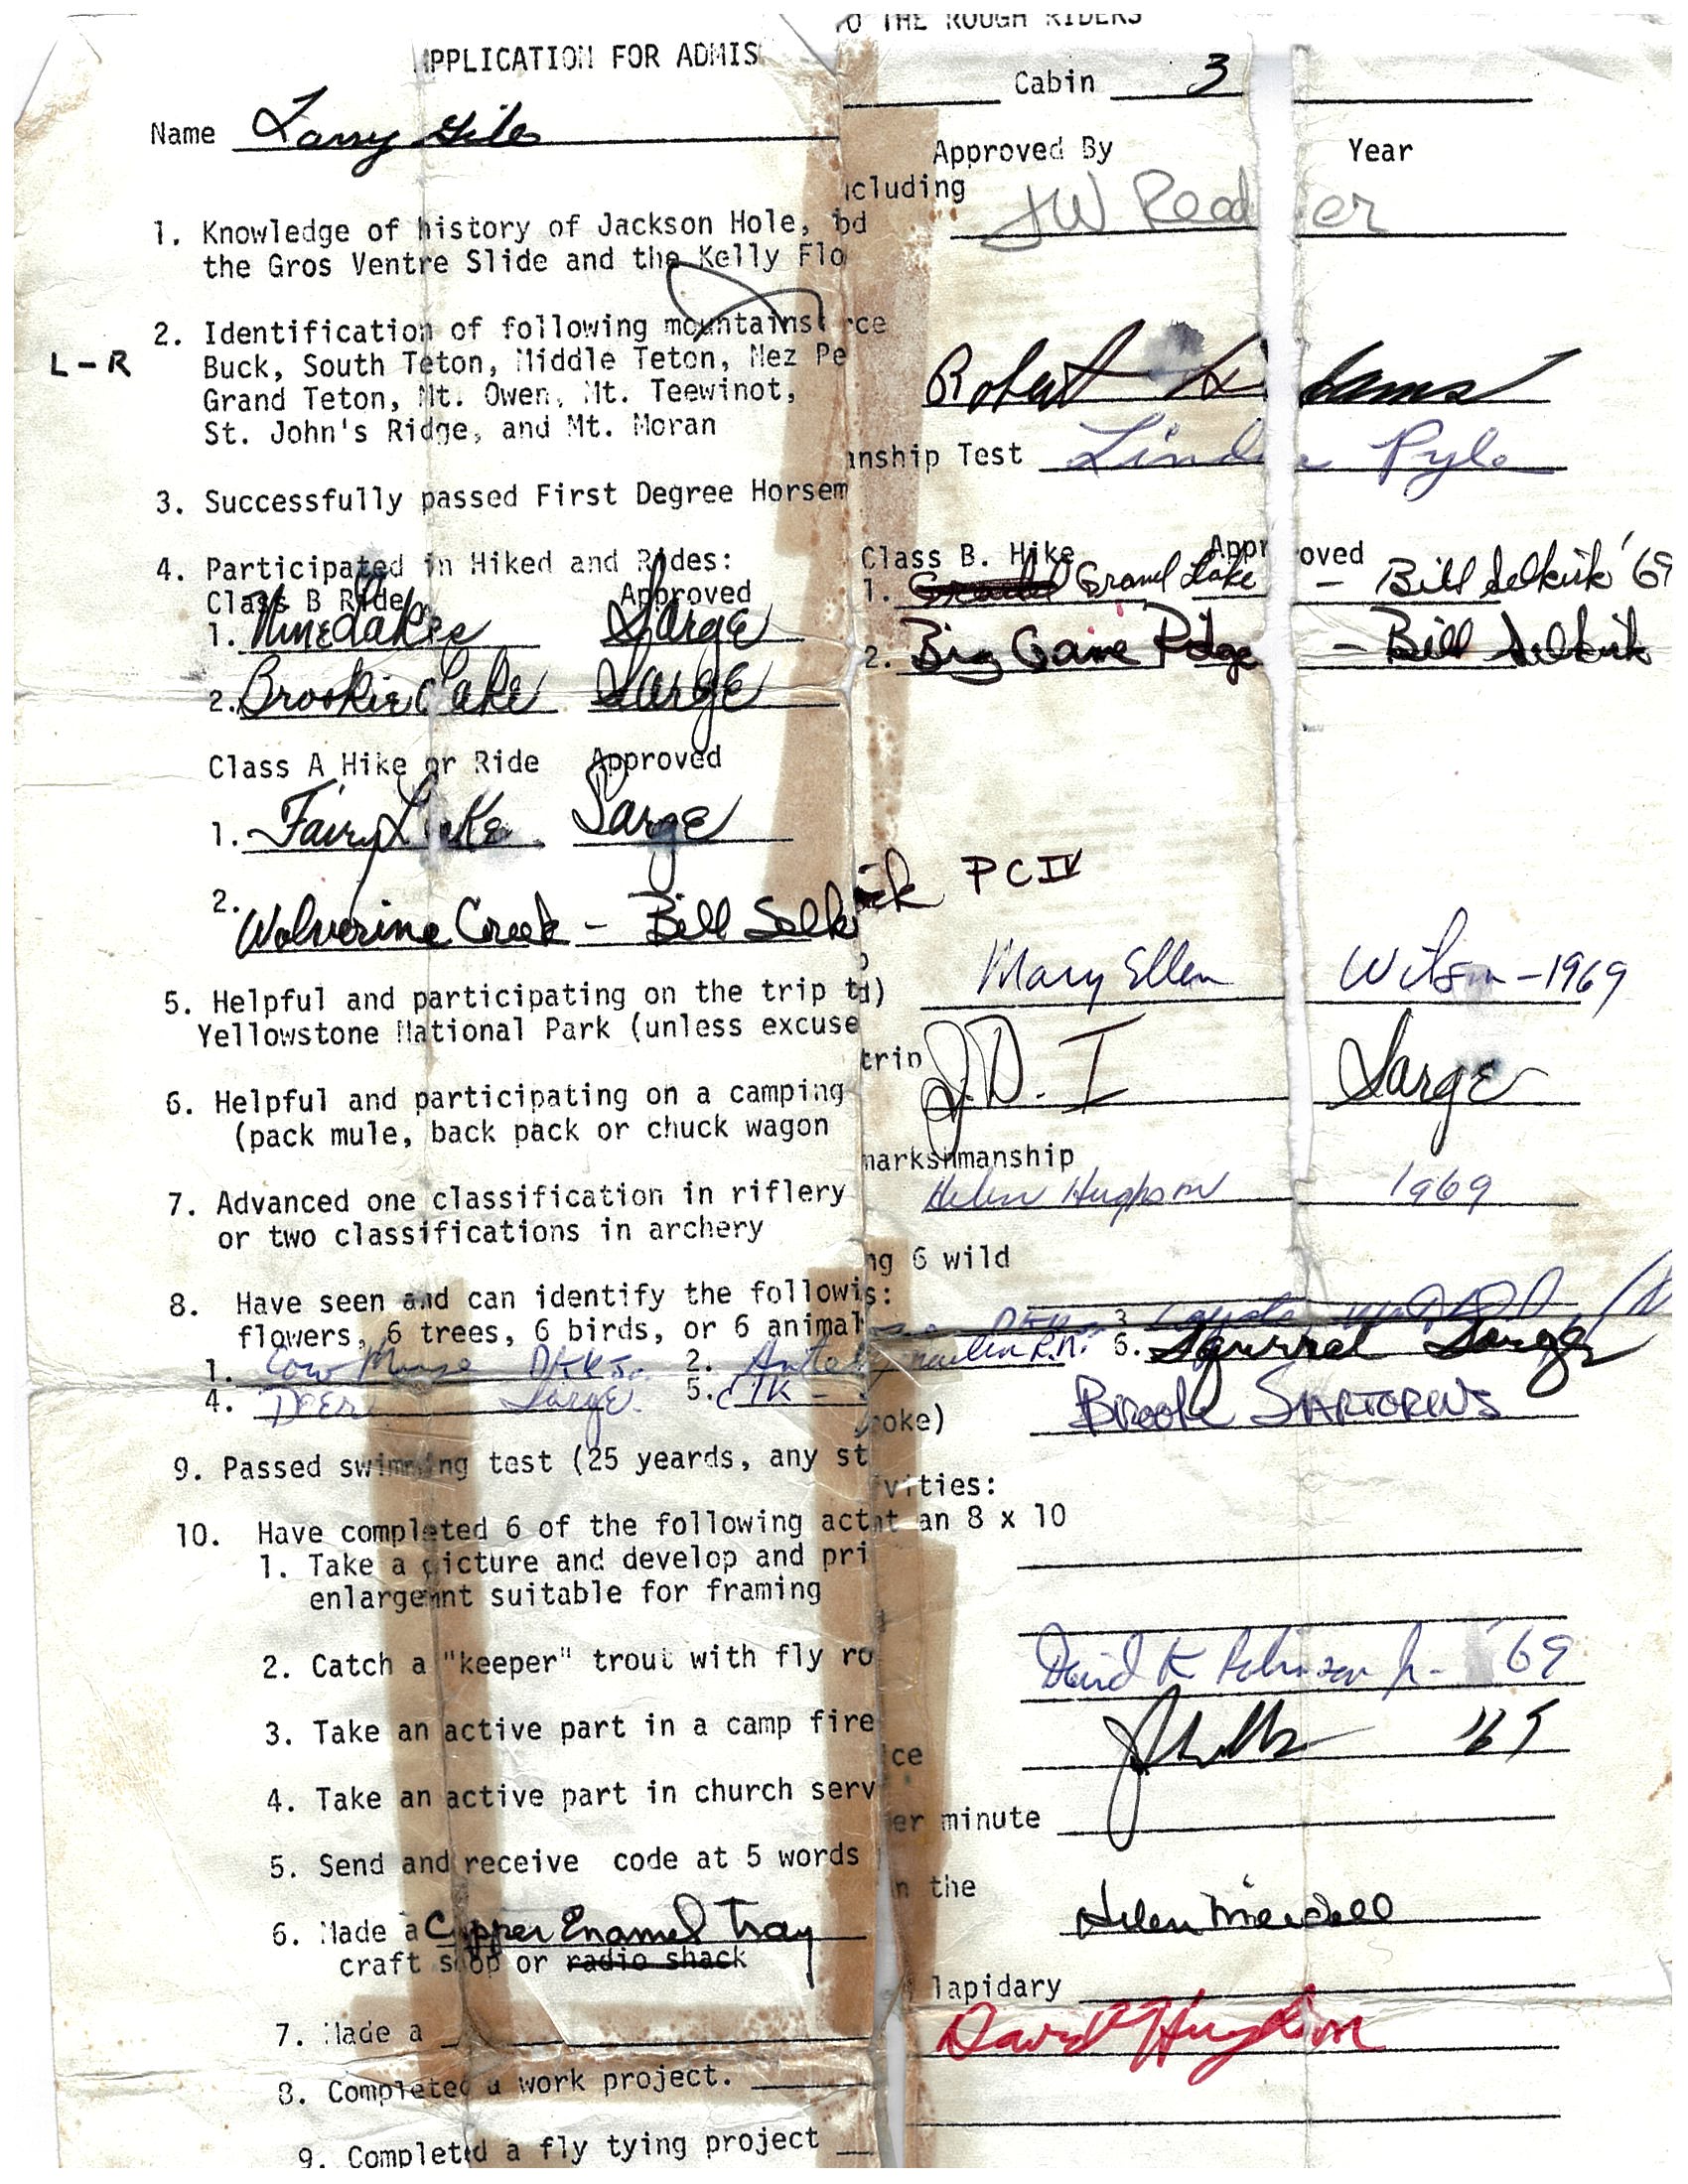 APPLICATION FOR ADMIS O THE ROUGH RIDERS
Name Larry Cabin 3
Approved By Year
1. Knowledge of history of Jackson Hole, including
the Gros Ventre Slide and the Kelly Flood JW Reader
2. Identification of following mountains:
L-R Buck, South Teton, Middle Teton, Nez Perce
Grand Teton, Mt. Owen, Mt. Teewinot,
St. John's Ridge, and Mt. Moran Robert Adams
3. Successfully passed First Degree Horsemanship Test Linda Pyle
4. Participated in Hiked and Rides:
Class B Ride Approved Class B. Hike Approved
1. Nine Lakes Sarge 1. Gravel Lake - Bill Selkirk '69
2. Brookie Lake Sarge 2. Big Game Ridge - Bill Selkirk
Class A Hike or Ride Approved
1. Fairy Lake Sarge
2. Wolverine Creek - Bill Selkirk PC IV
5. Helpful and participating on the trip to
Yellowstone National Park (unless excused) Mary Ellen Wilson - 1969
6. Helpful and participating on a camping trip
(pack mule, back pack or chuck wagon J.D. I Sarge
7. Advanced one classification in riflery marksmanship
or two classifications in archery Helen Hughson 1969
8. Have seen and can identify the following 6 wild
flowers, 6 trees, 6 birds, or 6 animals:
1. Cow Moose 2. 3. Coyote
4. Deer Sarge 5. Elk - 6. Squirrel Sarge
9. Passed swimming test (25 yeards, any stroke) Brooke SARTORIUS
10. Have completed 6 of the following activities:
1. Take a picture and develop and print an 8 x 10
enlargemnt suitable for framing
2. Catch a "keeper" trout with fly ro
3. Take an active part in a camp fire David K Robinson Jr. '69
4. Take an active part in church service '69
5. Send and receive code at 5 words per minute
6. Made a Copper Enamel Tray in the
craft shop or radio shack Helen
7. Made a lapidary
8. Completed a work project. David Hughson
9. Completed a fly tying project